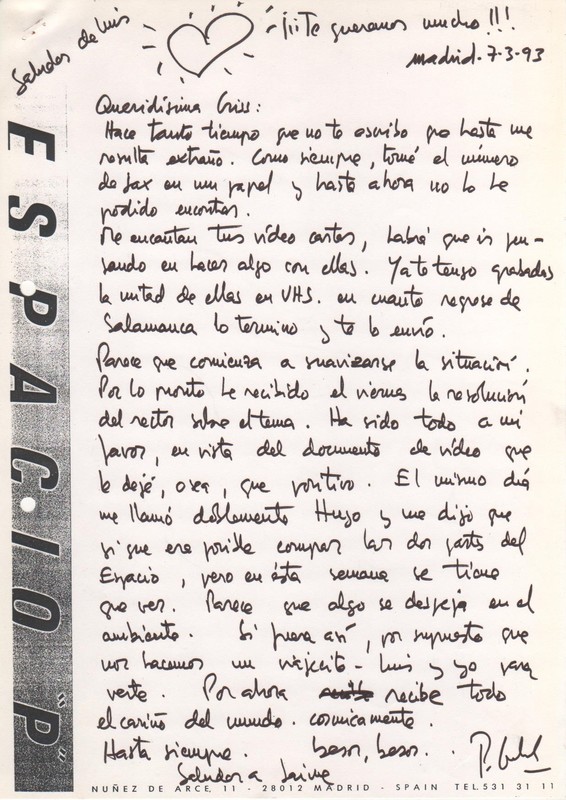 Saludos de Luis
¡¡¡Te queremos mucho!!!
madrid-7-3-93
Queridísima Criss:
Hace tanto tiempo que no te escribo que hasta me
resulta extraño. Como siempre, tomé el número
de fax en un papel y hasta ahora no lo he
podido encontrar.
Me encantan tus vídeo cartas, habrá que ir pen-
sando en hacer algo con ellas. Ya te tengo grabadas
la mitad de ellas en VHS. en cuanto regrese de
Salamanca lo termino y te lo envío.
Parece que comienza a suavizarse la situación.
Por lo pronto he recibido el viernes la resolución
del rector sobre el tema. Ha sido todo a mi
favor, en vista del documento de vídeo que
le dejé, o sea, que positivo. El mismo día
me llamó doblemente Hugo y me dijo que
si que era posible comprar las dos partes del
Espacio, pero en ésta semana se tiene
que ver. Parece que algo se despeja en el
ambiente. Si fuera así, por supuesto que
nos hacemos un viajecito - Luis y yo para
verte. Por ahora recibe todo
el cariño del mundo. cosmicamente.
Hasta siempre. besos, besos..
Saludos a Jaime
ESPACIO "P"
NUÑEZ DE ARCE, 11 - 28012 MADRID - SPAIN TEL. 531 31 11